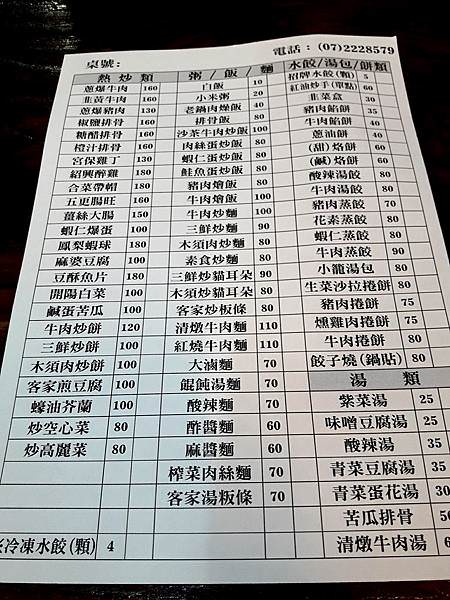 桌號：
電話：(07)2228579
熱炒類
蔥爆牛肉 160
韭黃牛肉 160
蔥爆豬肉 160
椒鹽排骨 160
糖醋排骨 160
橙汁排骨 160
宮保雞丁 130
紹興醉雞 180
合菜帶帽 180
五更腸旺 160
薑絲大腸 150
蝦仁爆蛋 100
鳳梨蝦球 180
麻婆豆腐 100
豆酥魚片 180
開陽白菜 100
鹹蛋苦瓜 100
牛肉炒餅 120
三鮮炒餅 100
木須肉炒餅 100
客家煎豆腐 100
蠔油芥蘭 100
炒空心菜 80
炒高麗菜 80
冷凍水餃(顆) 4
粥/飯/麵
白飯 10
小米粥 20
老鍋肉燥飯 40
排骨飯 80
沙茶牛肉炒飯 100
肉絲蛋炒飯 80
蝦仁蛋炒飯 80
鮭魚蛋炒飯 80
豬肉燴飯 80
牛肉燴飯 100
牛肉炒麵 100
三鮮炒麵 90
木須肉炒麵 80
素食炒麵 80
三鮮炒貓耳朵 90
木須炒貓耳朵 80
客家炒板條 80
清燉牛肉麵 110
紅燒牛肉麵 110
大滷麵 70
餛飩湯麵 70
酸辣麵 70
酢醬麵 60
麻醬麵 60
榨菜肉絲麵 70
客家湯板條 70
水餃/湯包/餅類
招牌水餃(顆) 5
紅油炒手(單點) 60
韭菜盒 30
豬肉餡餅 40
牛肉餡餅 40
蔥油餅 40
(甜)烙餅 60
(鹹)烙餅 60
酸辣湯餃 80
牛肉湯餃 80
豬肉蒸餃 70
花素蒸餃 80
蝦仁蒸餃 80
牛肉蒸餃 90
小籠湯包 80
生菜沙拉捲餅 80
豬肉捲餅 75
燻雞肉捲餅 75
牛肉捲餅 80
餃子燒(鍋貼) 80
湯類
紫菜湯 25
味噌豆腐湯 25
酸辣湯 35
青菜豆腐湯 35
青菜蛋花湯 30
苦瓜排骨
清燉牛肉湯